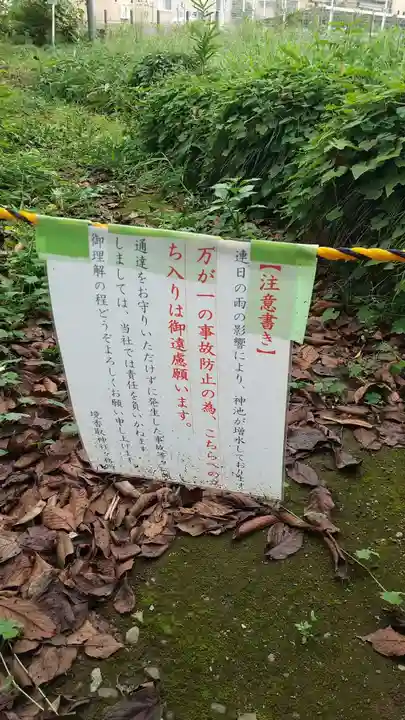 【注意書き】
連日の雨の影響により、神池が増水しております
万が一の事故防止の為、こちらへの
ち入りは御遠慮願います。
通達をお守りいただけずに発生した事故等
しましては、当社では責任を負いかねます
御理解の程どうぞよろしくお願い申し上げます。
境香取神社